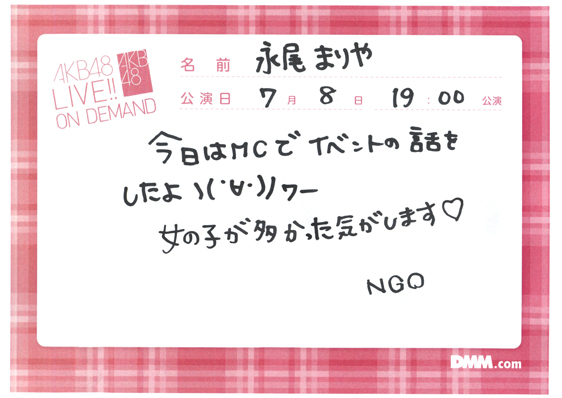 AKB48
LIVE!!
ON DEMAND
AKB
48
名前 永尾まりや
公演日 7月8日 19:00 公演
今日はMCでイベントの話を
したよヽ(・∀・)ノワー
女の子が多かった気がします♡
NGO
DMM.com